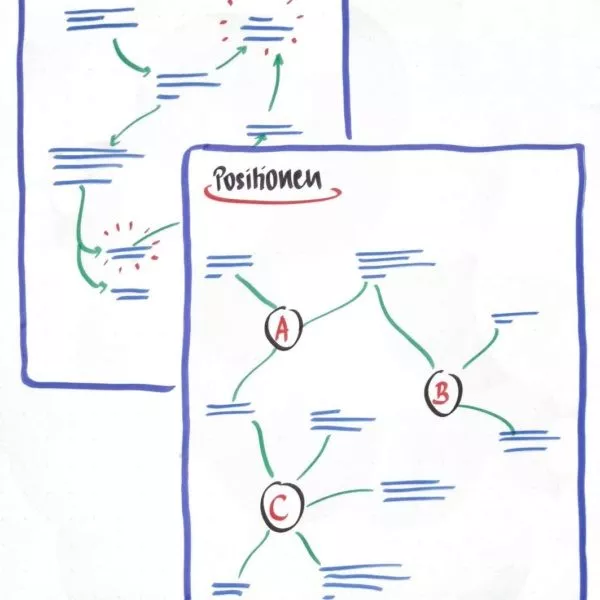 Positionen
A
B
C